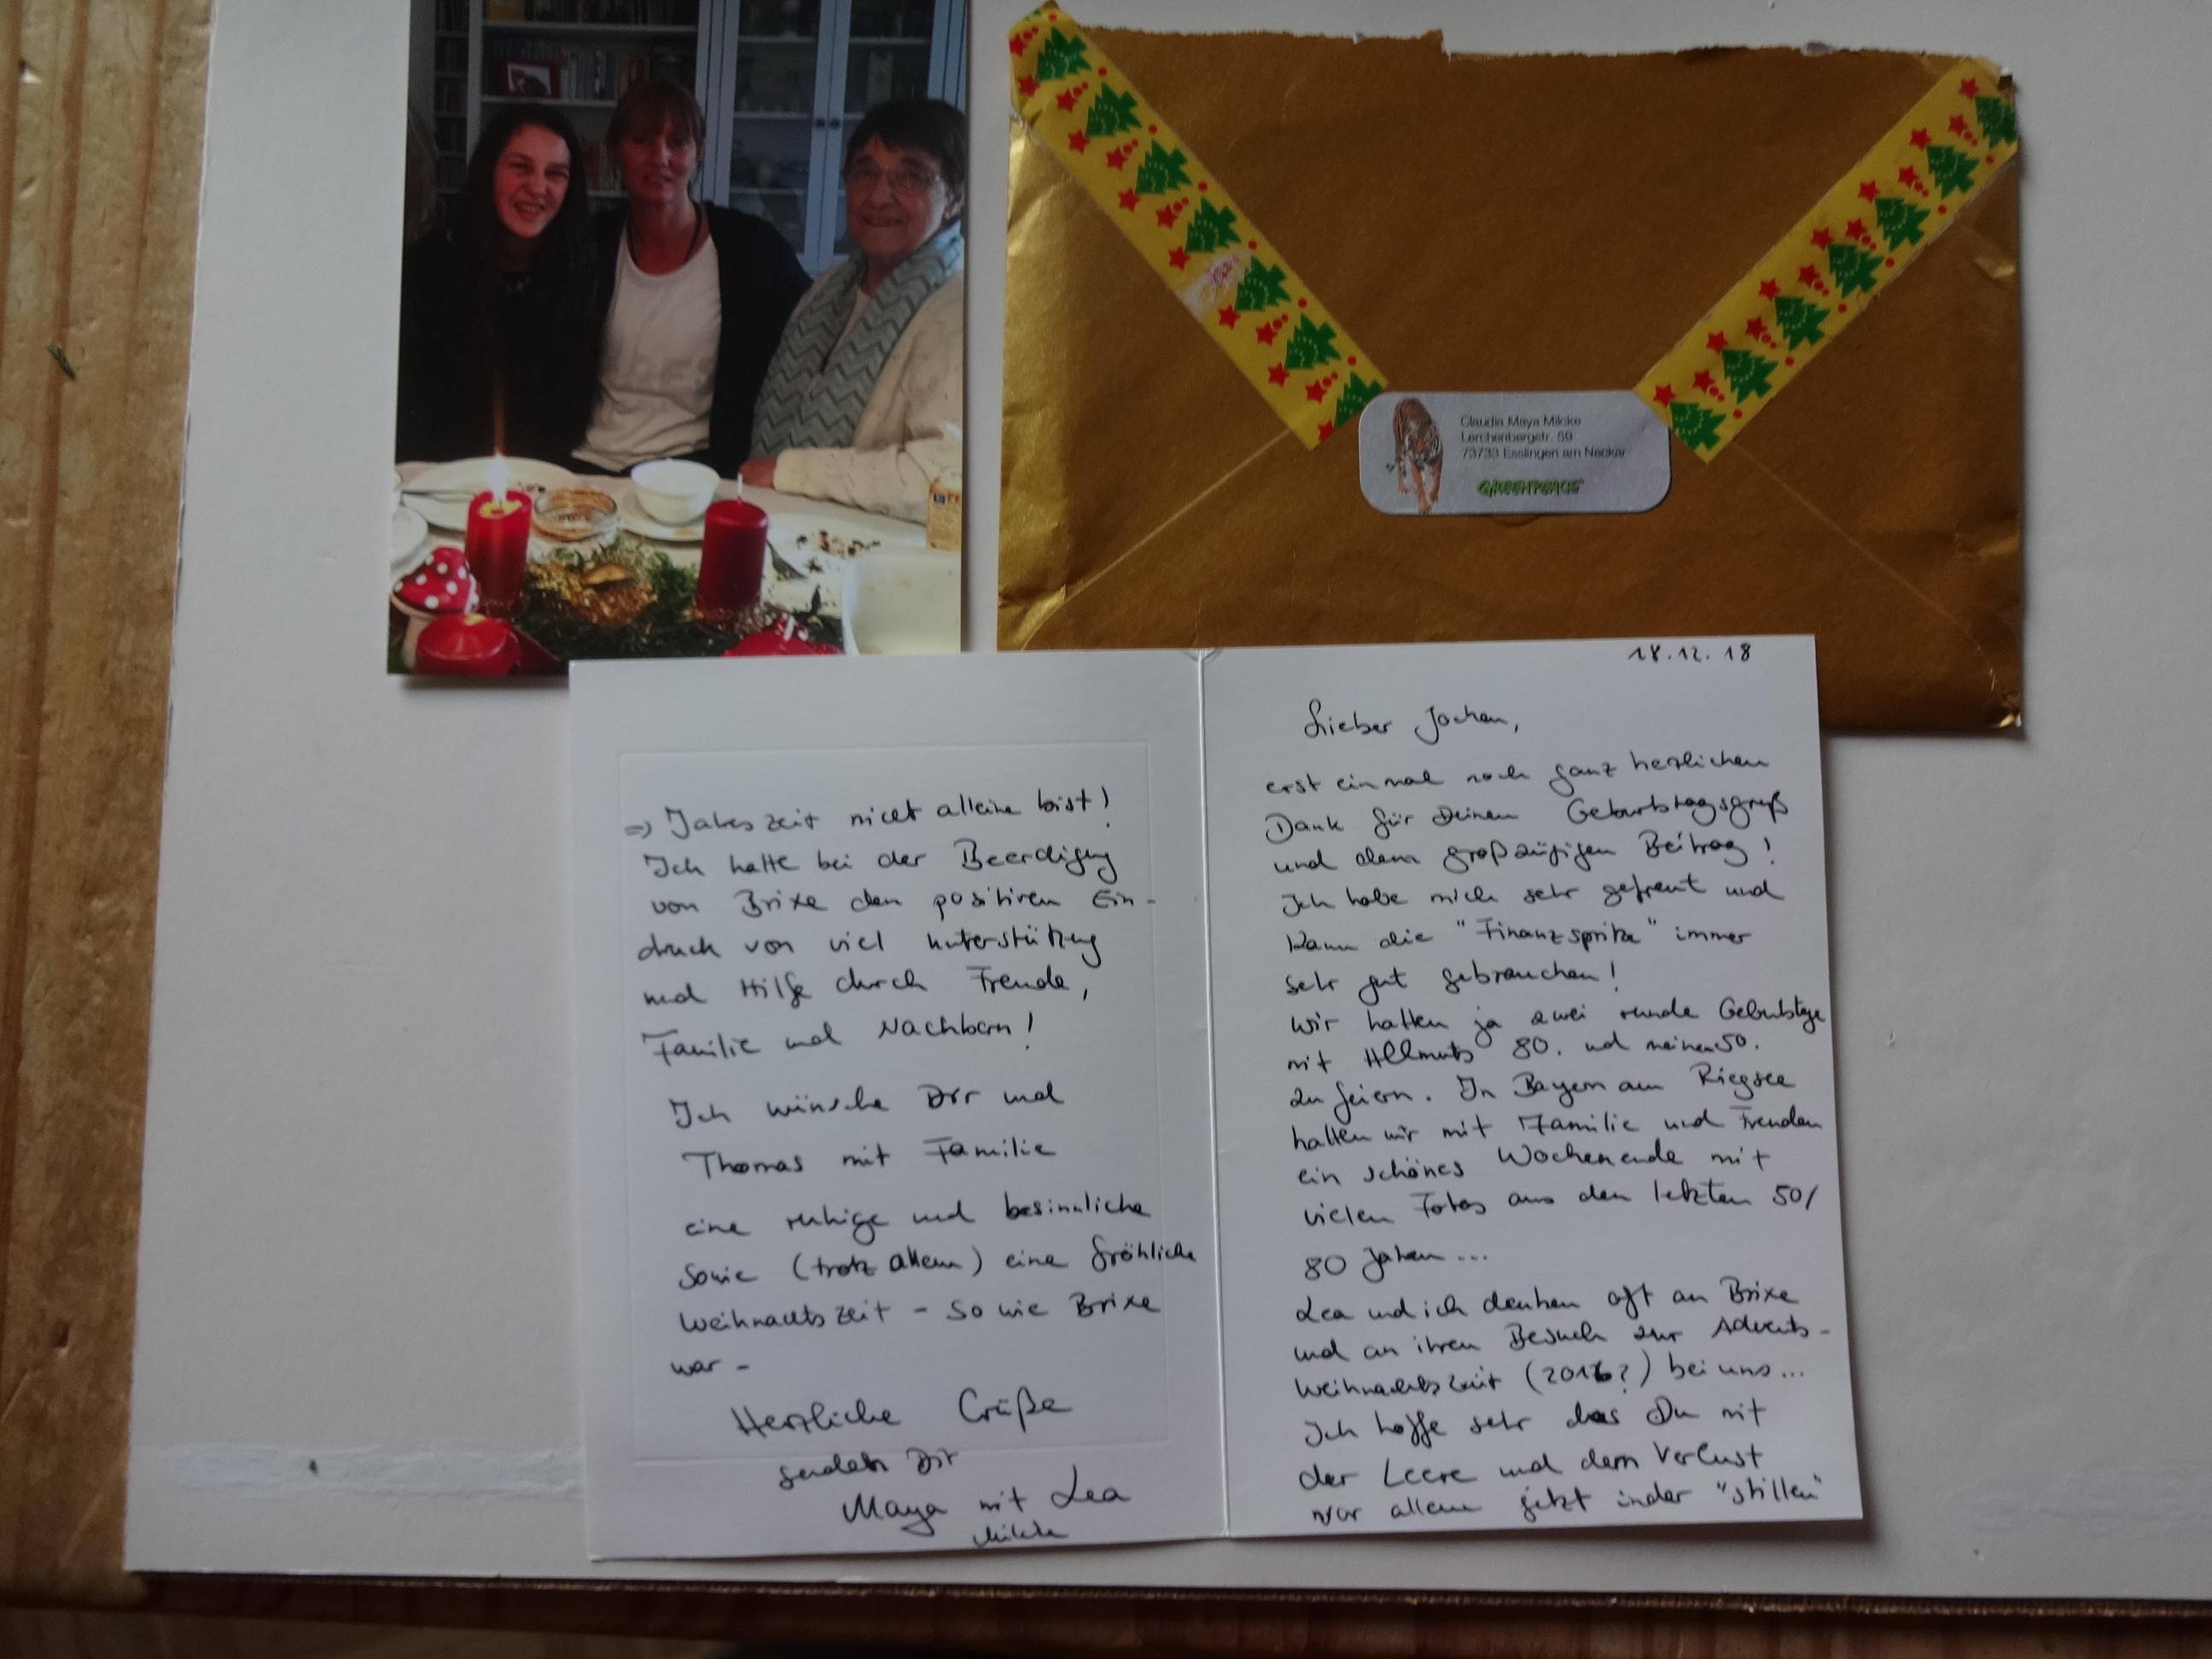 Claudia Maya Milcke
Lerchenbergstr. 59
73733 Esslingen am Neckar
GREENPEACE
18.12.18
Lieber Jochen,
erst einmal noch ganz herzlichen
Dank für Deinen Geburtstagsgruß
und dem großzügigen Beitrag!
Ich habe mich sehr gefreut und
kann die "Finanzspritze" immer
sehr gut gebrauchen!
Wir hatten ja zwei runde Geburtstage
mit Hellmuts 80. und meinen 50.
zu feiern. In Bayern am Riegsee
hatten wir mit Familie und Freunden
ein schönes Wochenende mit
vielen Fotos aus den letzten 50/
80 Jahren...
Lea und ich denken oft an Brixe
und an ihren Besuch zur Advents-
Weihnachtszeit (2016?) bei uns...
Ich hoffe sehr das Du mit
der Leere und dem Verlust
vor allem jetzt in der "stillen"
=> Jahreszeit nicht alleine bist!
Ich hatte bei der Beerdigung
von Brixe den positiven Ein-
druck von viel Unterstützung
und Hilfe durch Freunde,
Familie und Nachbarn!
Ich wünsche Dir und
Thomas mit Familie
eine ruhige und besinnliche
sowie (trotz allem) eine fröhliche
Weihnachtszeit - so wie Brixe
war -
Herzliche Grüße
senden Dir
Maya mit Lea
Milcke